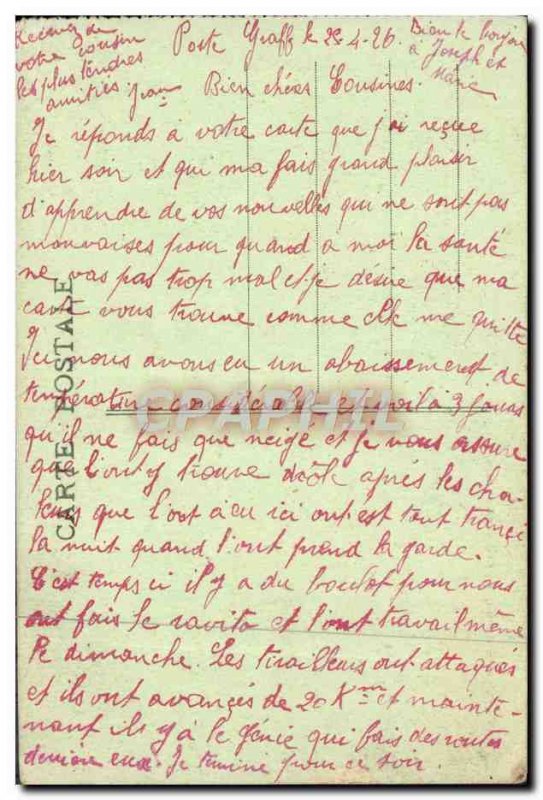 Poste Graffs le 22-4-26.
Bien chères Cousines.
Je réponds à votre carte que j'ai reçue
hier soir et qui ma fais grand plaisir
d'apprendre de vos nouvelles qui ne sont pas
mauvaises pour quand à moi la santé
ne vas pas trop mal et je désire que ma
carte vous trouve comme elle me quitte
Ici nous avons eu un abaissement de
température considérable voilà 3 jours
qu'il ne fais que neige et je vous assure
que l'ont y trouve drôle après les cha-
leurs que l'ont a eu ici ont est tout transi
la nuit quand l'ont prend la garde.
C'est temps ci il y a du boulot pour nous
ont fais le ravito et l'ont travail même
le dimanche. Les tirailleurs ont attaqués
et ils ont avancés de 20 Km et mainte-
nant ils y à le Génie qui fais des routes
derrière eux. Je termine pour ce soir.
Recevez de
votre cousin
les plus tendres
amitiés Jean
Bien le bonjour
à Joseph et
Marie
CARTE POSTALE
CPAPHIL